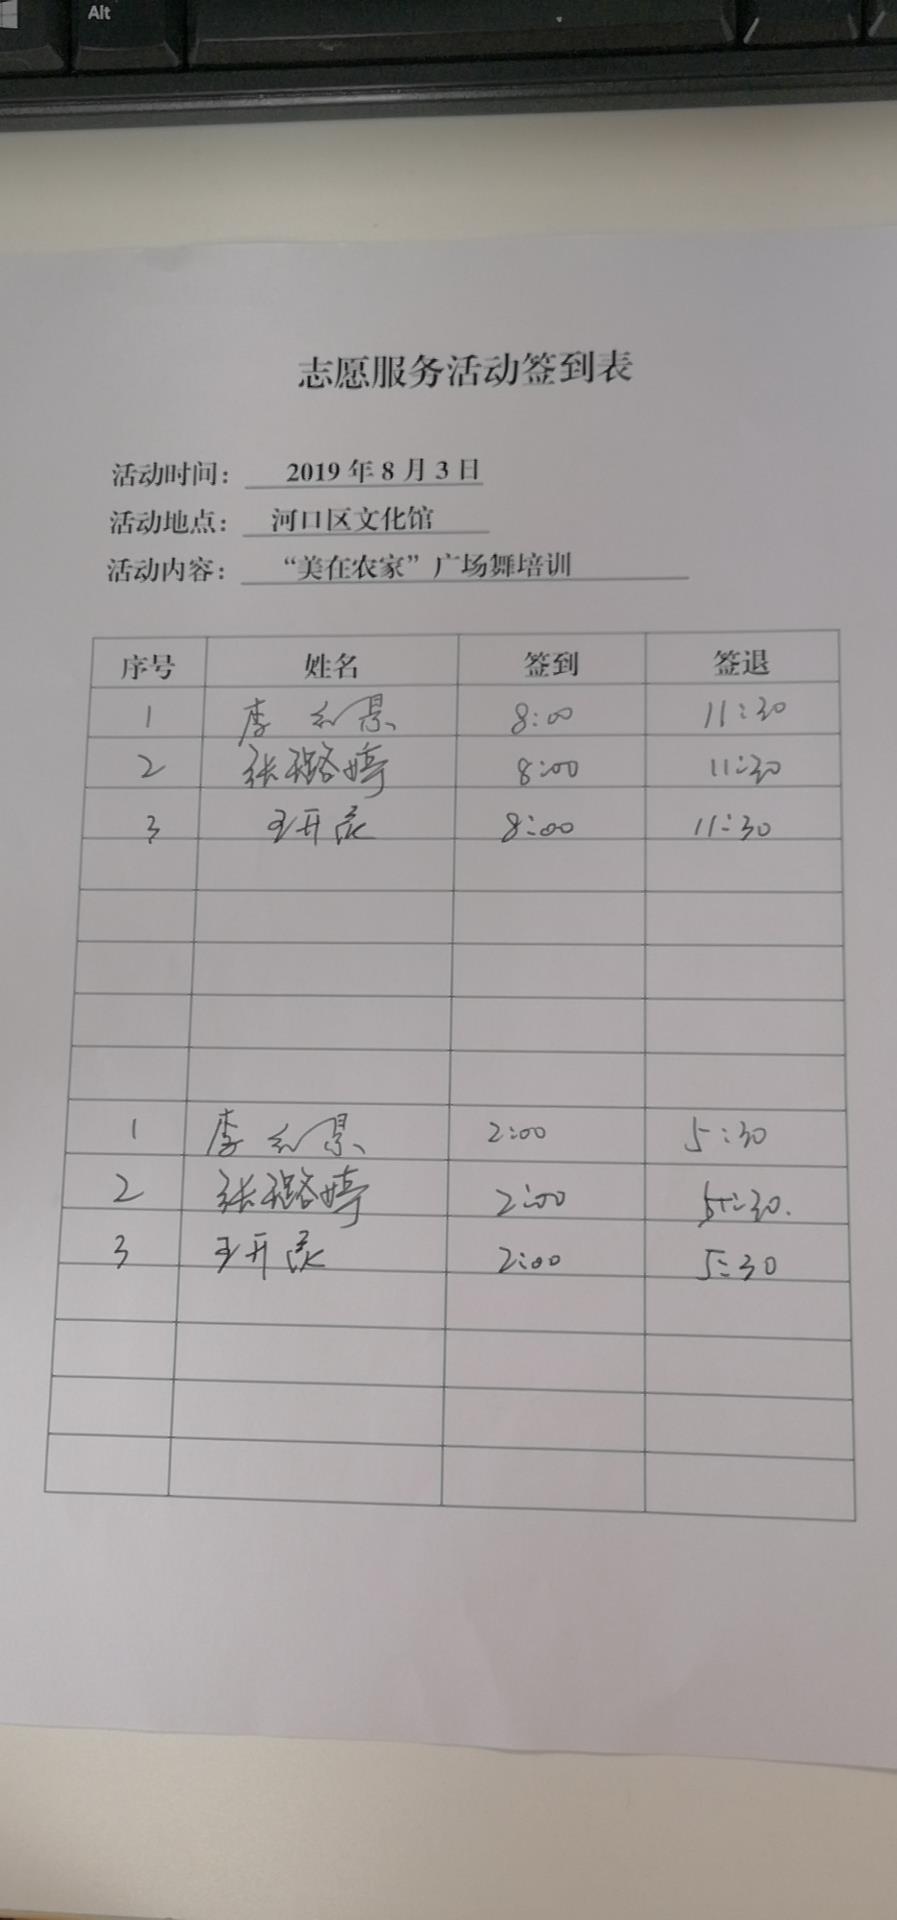 Alt
志愿服务活动签到表
活动时间： 2019 年 8 月 3 日
活动地点： 河口区文化馆
活动内容： “美在农家”广场舞培训
序号 姓名 签到 签退
1 李 景 8:00 11:30
2 张璐婷 8:00 11:30
3 王开 8:00 11:30
1 李 景 2:00 5:30
2 张璐婷 2:00 5:30.
3 王开 2:00 5:30